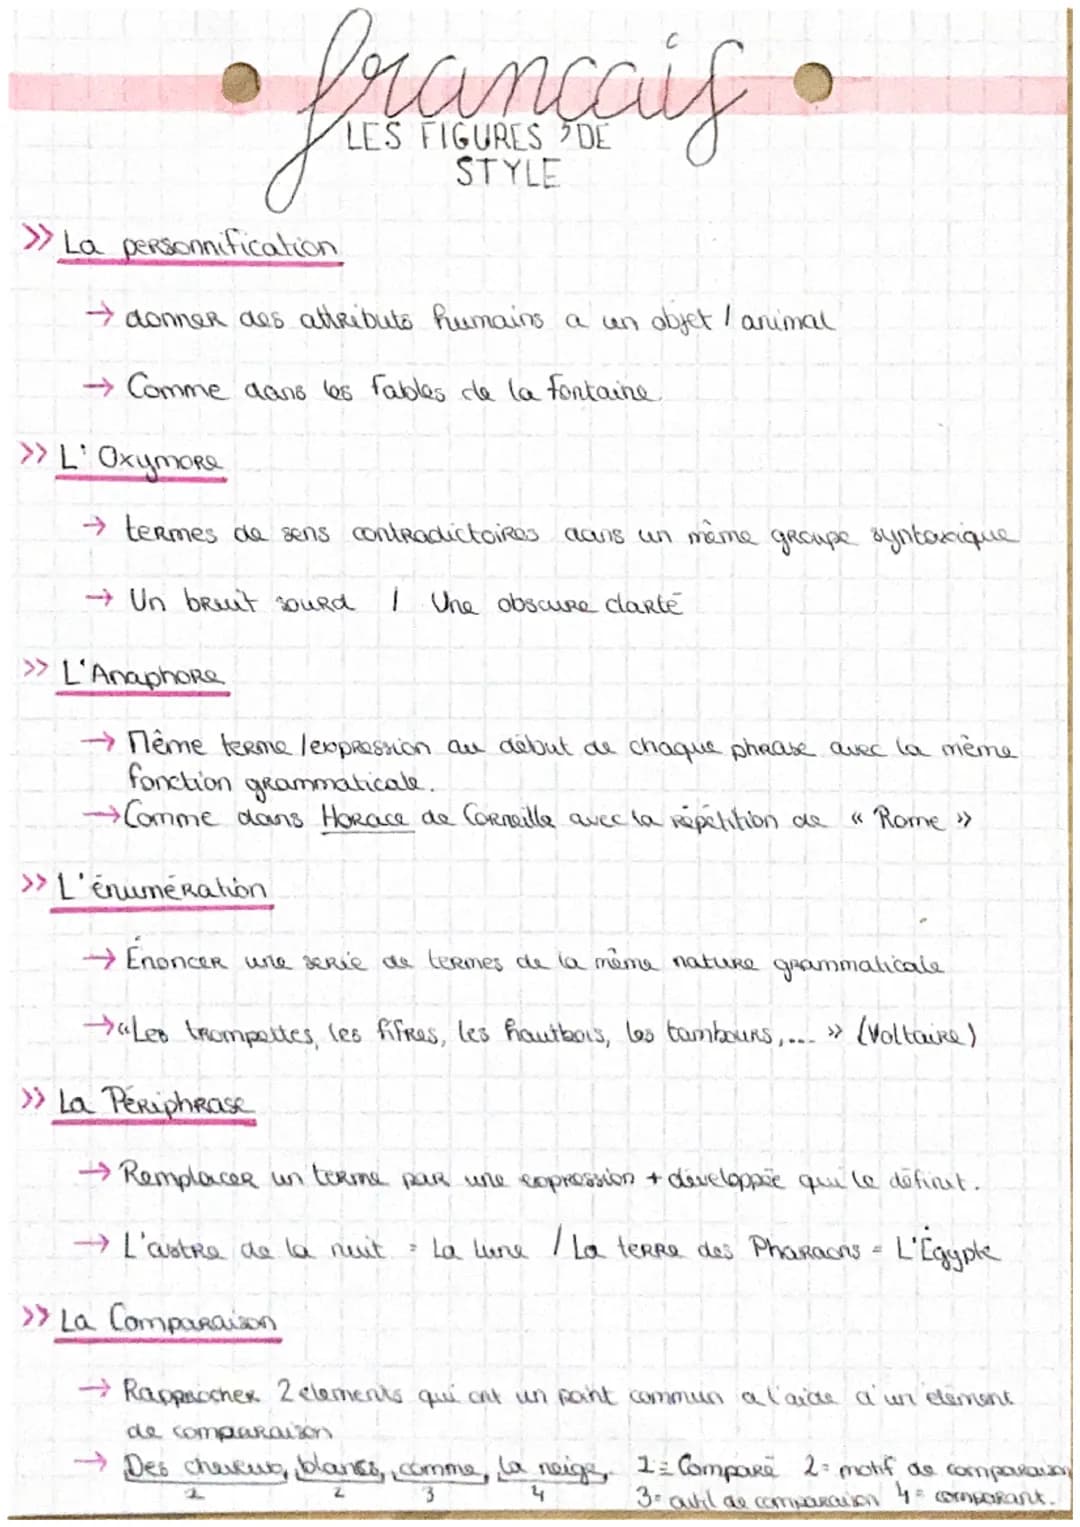 francais
LES FIGURES DE
STYLE
>> La personnification
→ donner des attributs humains a un objet / animal
→ Comme dans les fables de la fontaine.
>> L'Oxymore
→ termes de sens contradictoires dans un même groupe syntaxique
→ Un bruit sourd / Une obscure clarté
>> L'Anaphore
→ Même terme /expression au début de chaque phrase avec la même
fonction grammaticale.
→ Comme dans Horace de Corneille avec la répétition de « Rome »
>> L'énumération
→ Énoncer une serie de termes de la même nature grammaticale
→ «Les trompettes, les fifres, les hautbois, les tambours,... » (Voltaire)
>> La Périphrase
→ Remplacer un terme par une expression + développée qui le définit.
→ L'astre de la nuit = La lune / La terre des Pharaons = L'Égypte
>> La Comparaison
→ Rapprocher 2 elements qui ont un point commun a l'aide d'un élément
de comparaison
→ Des cheveux, blancs, comme, la neige, 1 = Comparé 2 = motif de comparaison
1 2 3 4 3 = outil de comparaison 4 = comparant.